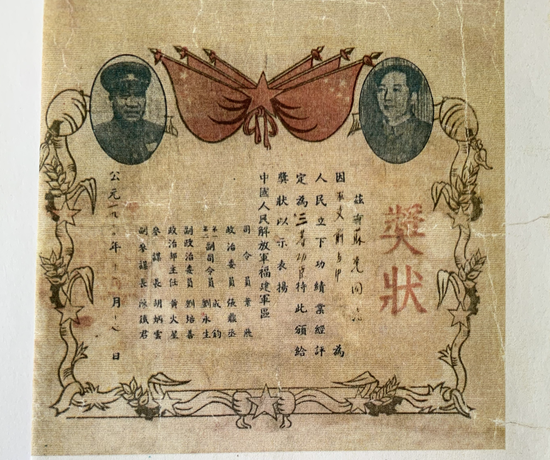 獎狀
蘇 同志
因 為
人民立下功績業經評
定為三等功臣特此頒給
獎狀以示表揚
中國人民解放軍福建軍區
司令員葉飛
政治委員張鼎丞
第一副司令員成鈞
第二副司令員劉永生
副政治委員劉培善
政治部主任黃火星
參謀長胡炳雲
副參謀長陳鐵君
公元一九 年 月 日